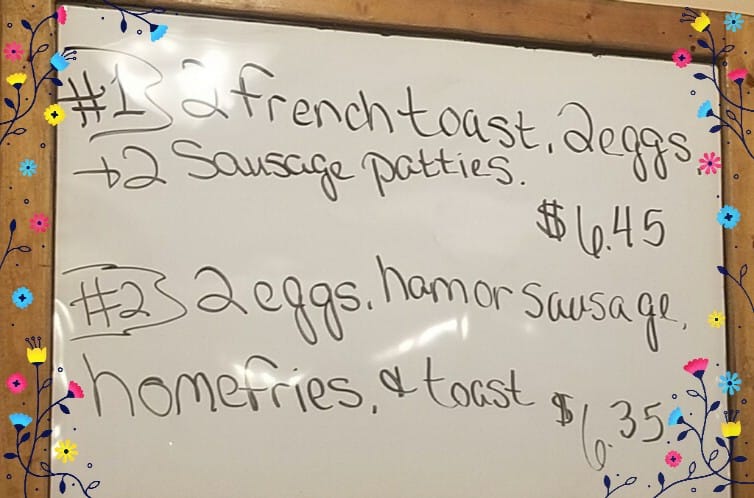 #1 2 french toast, 2 eggs
+2 Sausage patties.
$6.45
#2 2 eggs, ham or sausage,
homefries, & toast $6.35